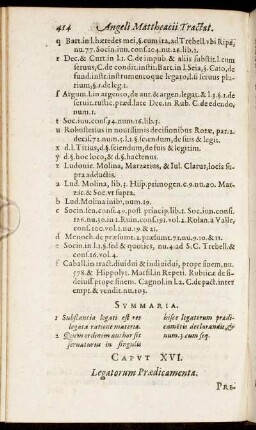 414 Angeli Matthæacii Tractat.
q Bart. in l. hæredes mei, §. cum ita, ad Trebell. vbi Ripa,
nu. 77. Socin. iun. cons. 104. nu. 16. lib. 1.
r Dec. & Curt. in l. 1. C. de impub. & aliis substit. l. cum
seruus, C. de condit. instit. Bart. in l. Seia, §. Cato, de
fund. instr. instrumentoque legato, l. si seruus plu-
rium, §. 1. de leg. 1.
f Argum. l. in argento, de aur. & argen. legat. & l. 3. §. 1. de
seruit. rustic. præd. late Dec. in Rub. C. de edendo,
num. 1.
t Soc. iun. cons. 74. num. 16. lib. 1.
u Robusterius in nouissimis decisionibus Rotæ, par. 2.
decis. 71. num. 4. l. 1. §. sciendum, de suis & legit.
x d. l. Titius, d. §. sciendum, de suis & legitim.
y d. §. hoc loco, & d. §. hactenus.
z Ludouic. Molina, Marzarius, & Iul. Clarus, locis su-
pra adductis.
a Lud. Molina, lib. 3. Hisp. primogen. c. 9. nu. 20. Mar-
zar. & Soc. vt supra.
b Lud. Molina inibi, num. 19.
c Socin. sen. cons. 49. post princip. lib. 1. Soc. iun. cons.
126. nu. 30. in 1. Ruin. cons. 191. vol. 1. Roland. à Valle,
cons. 100. vol. 1. nu. 19. & 21.
d Menoch. de præsumt. 2. præsumt. 71. nu. 9. 10. & 11.
e Socin. in l. 1. §. sed & quoties, nu. 4. ad S. C. Trebell. &
cons. 16. vol. 4.
f Caball. in tract. diuidui & indiuidui, prope finem. nu.
578. & Hippolyt. Marsil. in Repeti. Rubricæ de fi-
deiuss. prope finem. Cagnol. in l. 2. C. de pact. inter
empt. & vendit. nu. 103.
SVMMARIA.
1 Substantia legati est re-
legata ratione materia.
2 Quem ordinem auctor sit
seruaturus in singulis
hisce legatorum prædi-
camentis declarandis, &
num. 3. cum seq.
CAPVT XVI.
Legatorum Prædicamenta.
PRE-